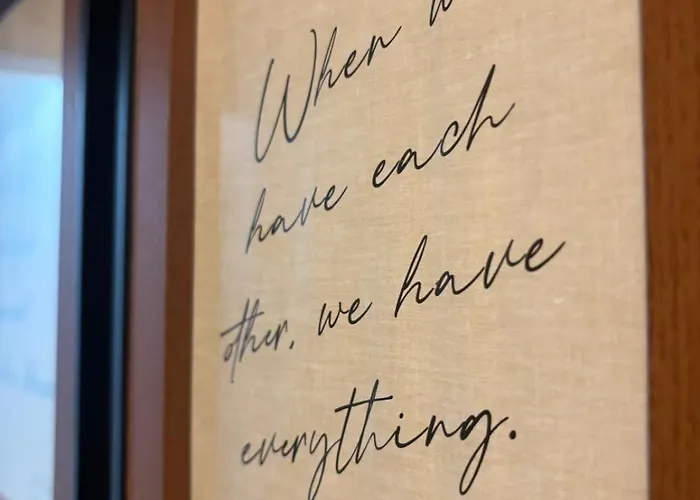 When
have each
other, we have
everything.